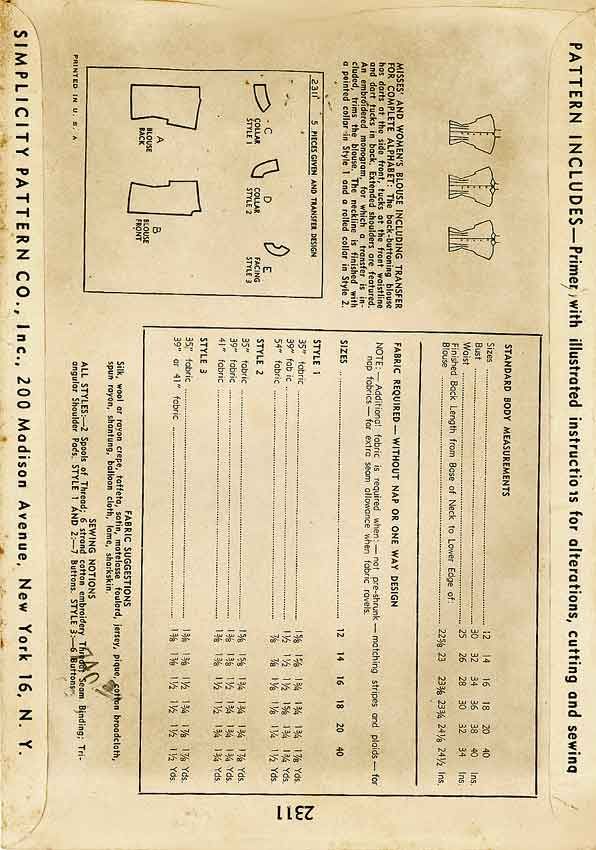 PATTERN INCLUDES—Primer, with illustrated instructions for alterations, cutting and sewing
MISSES' AND WOMEN'S BLOUSE INCLUDING TRANSFER
FOR COMPLETE ALPHABET: The back-buttoning blouse
has darts at the side front, tucks at the front waistline
and dart tucks in back. Extended shoulders are featured.
An embroidered monogram, for which a transfer is in-
cluded, trims the blouse. The neckline is finished with
a pointed collar in Style 1 and a rolled collar in Style 2.
2311 5 PIECES GIVEN AND TRANSFER DESIGN
C
COLLAR
STYLE 1
D
COLLAR
STYLE 2
E
FACING
STYLE 3
A
BLOUSE
BACK
B
BLOUSE
FRONT
PRINTED IN U. S. A.
STANDARD BODY MEASUREMENTS
Sizes 12 14 16 18 20 40
Bust 30 32 34 36 38 40 Ins.
Waist 25 26 28 30 32 34
Finished Back Length from Base of Neck to Lower Edge of:
Blouse 22⅝ 23 23⅜ 23¾ 24⅛ 24½ Ins.
FABRIC REQUIRED—WITHOUT NAP OR ONE WAY DESIGN
NOTE:—Additional fabric is required when:—not pre-shrunk—matching stripes and plaids—for
nap fabrics—for extra seam allowance when fabric ravels.
SIZES 12 14 16 18 20 40
STYLE 1
35" fabric 1⅝ 1⅝ 1¾ 1¾ 1¾ 1⅞ Yds.
39" fabric 1½ 1½ 1½ 1⅝ 1¾ 1¾ Yds.
54" fabric ⅞ ⅞ Yds.
STYLE 2
35" fabric 1⅝ 1⅝ 1¾ 1¾ 1¾ 1⅞ Yds.
39" fabric 1⅜ 1½ 1½ 1¾ 1¾ Yds.
41" fabric 1⅜ 1⅜ 1½ 1¾ 1¾ Yds.
STYLE 3
35" fabric 1⅜ 1⅜ 1½ 1¾ 1⅞ Yds.
39" or 41" fabric 1⅜ 1⅜ 1½ 1½ 1½ 1½ Yds.
FABRIC SUGGESTIONS
Silk, wool or rayon crepe, taffeta, satin, matelasse foulard, jersey, pique, cotton broadcloth,
spun rayon, shantung, balloon cloth, lame, sharkskin.
SEWING NOTIONS
ALL STYLES:—2 Spools of Thread; 6 strand cotton embroidery Thread; Seam Binding; Tri-
angular Shoulder Pads. STYLE 1 AND 2:—7 Buttons. STYLE 3:—6 Buttons.
2311
SIMPLICITY PATTERN CO., Inc., 200 Madison Avenue, New York 16, N. Y.